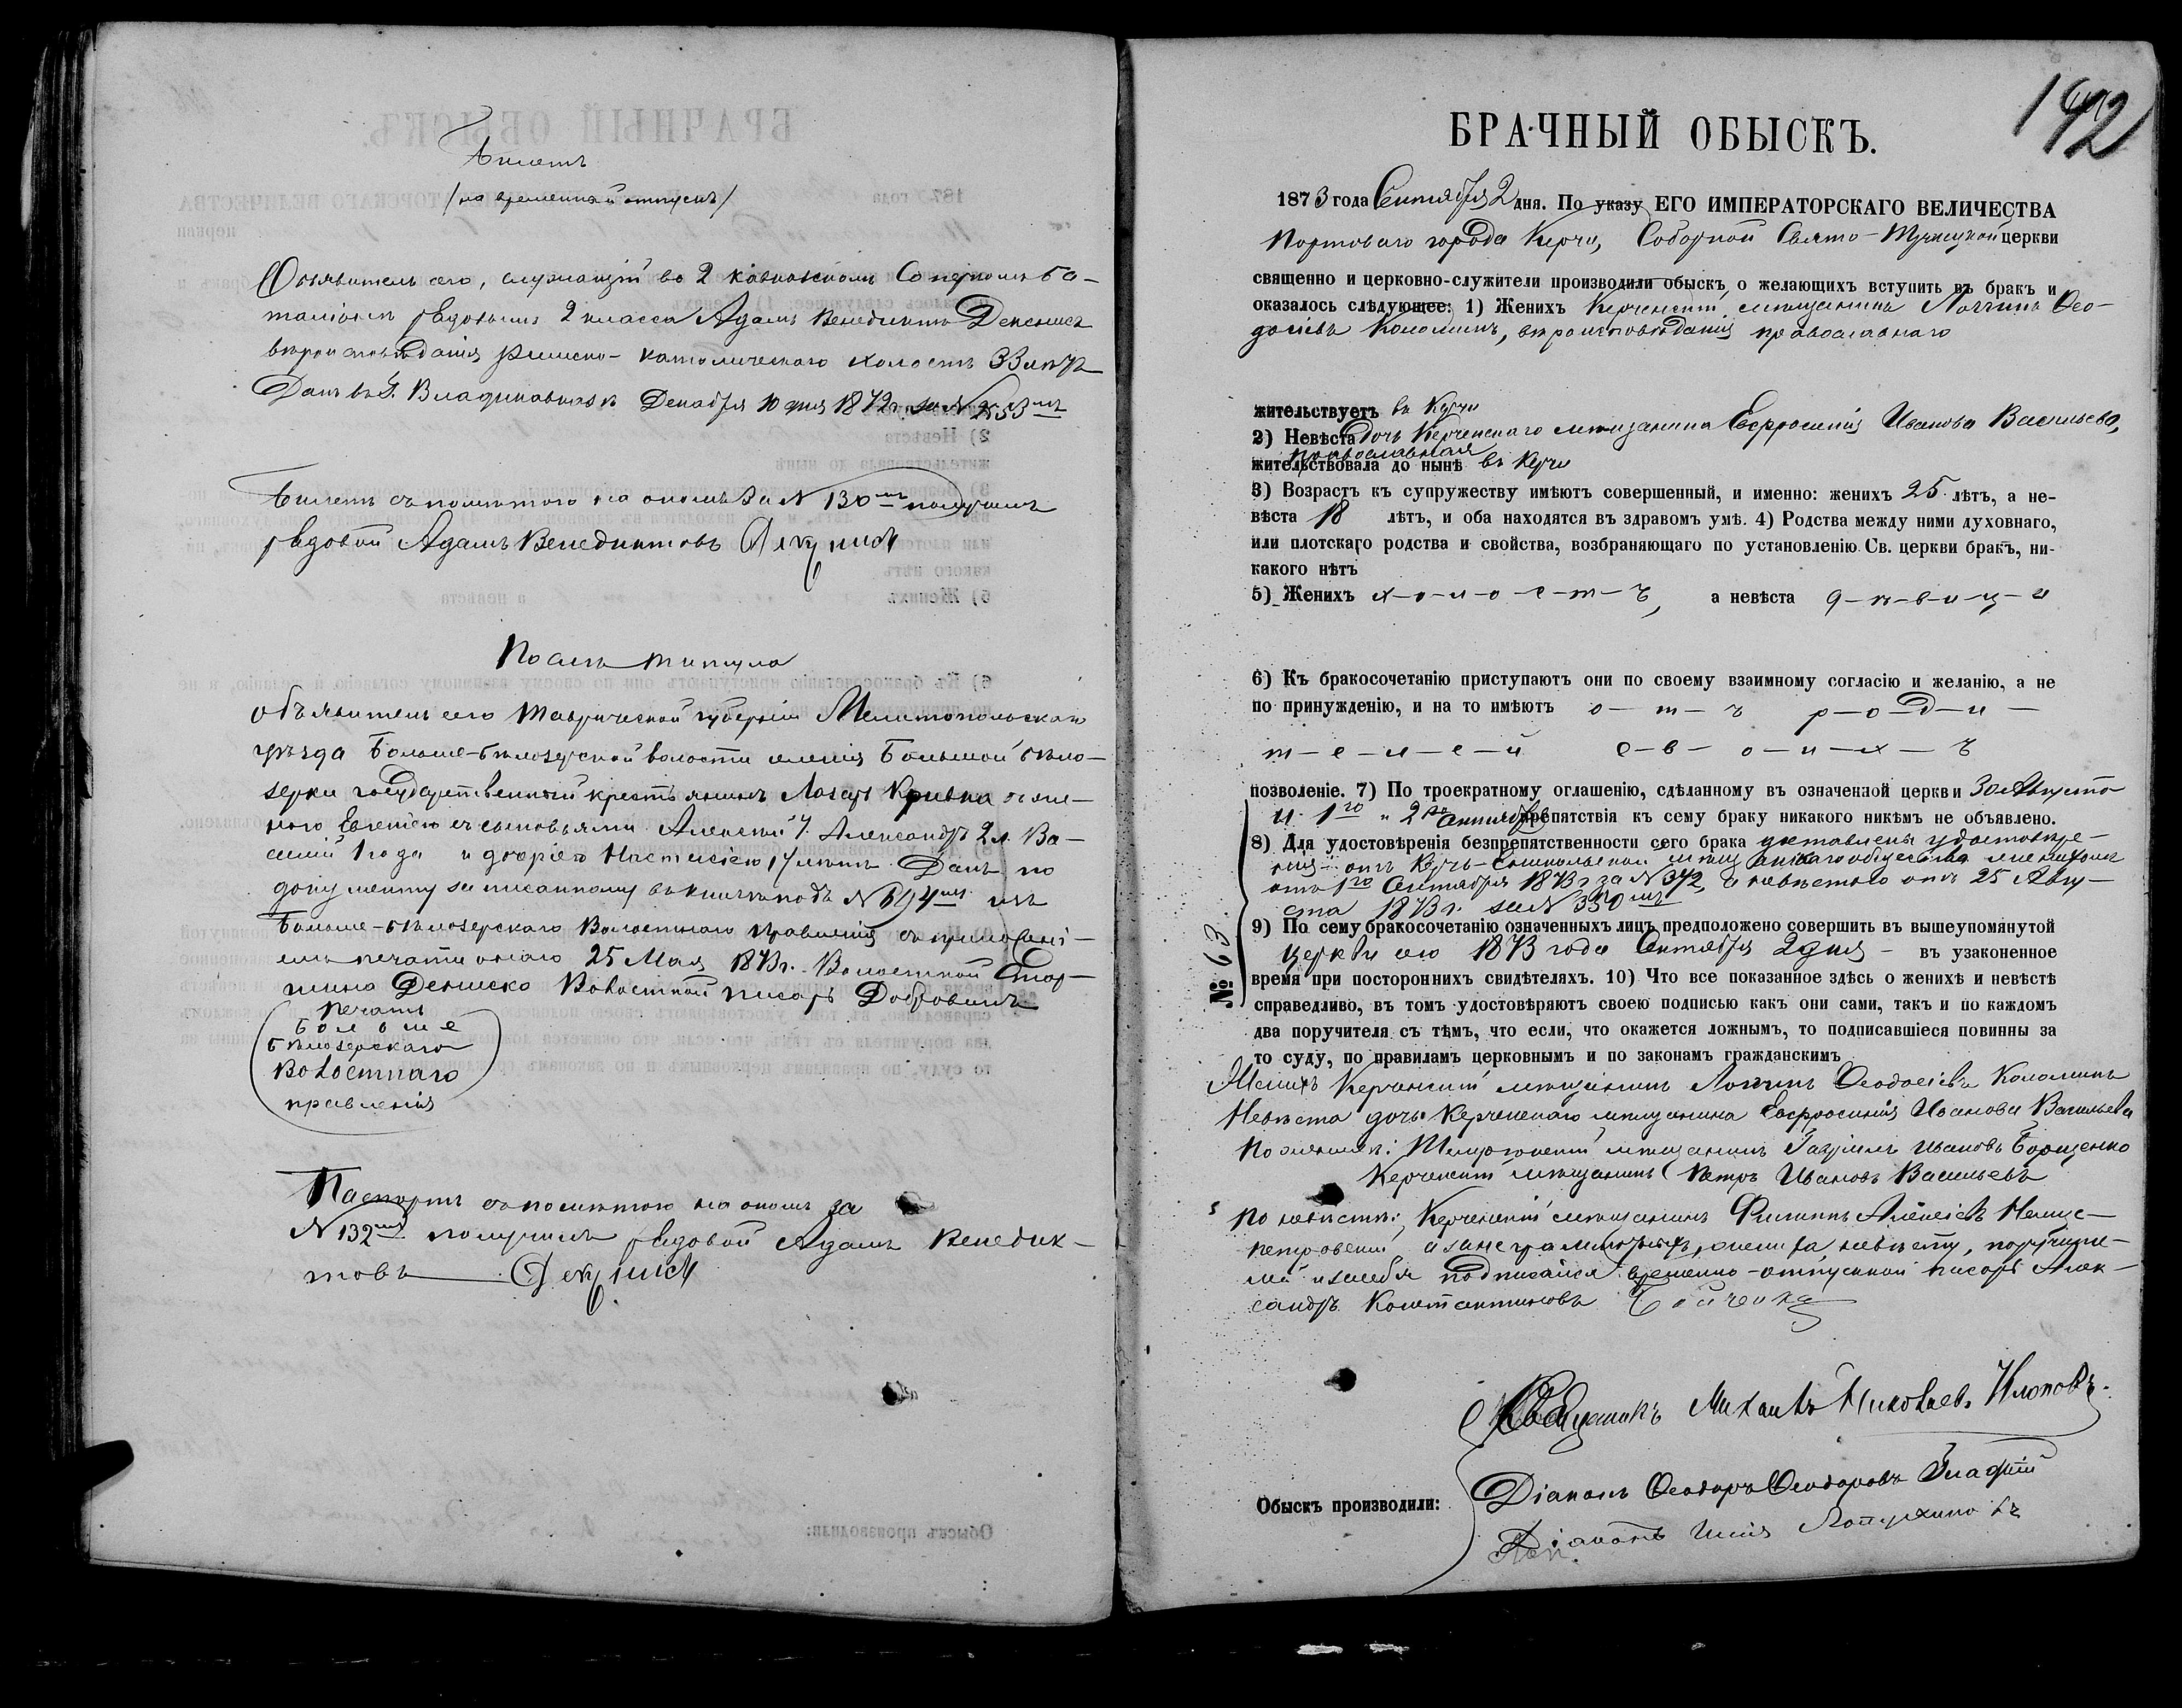 Билетъ
/на временный отпускъ/
Объявитель сего, служащій во 2 Кавказскомъ Саперномъ ба-
таліонѣ рядовымъ 2 класса Адамъ Венедиктъ
вѣроисповѣданія Римско-католическаго холостъ 33 лѣтъ
Данъ въ г. Владикавказѣ Декабря 10 дня 1872 г. за № 2553мъ
Билетъ съ помѣткою на ономъ за № 130мъ получилъ
рядовой Адамъ Венедиктовъ
Послѣ титула
объявитель сего Таврической губерніи Мелитопольскаго
уѣзда Больше-Бѣлозерской волости селенія Большой Бѣло-
зерки государственный крестьянинъ Лазарь Кривка съ же-
ною Евгеніею съ сыновьями Алексѣй 7. Александръ 2 л. Ва-
силій 1 года и дочерію Настасіею 17 лѣтъ Данъ по
документу записанному въ книгѣ подъ № 694мъ изъ
Больше-Бѣлозерскаго Волостнаго Правленія съ приложені-
емъ печати онаго 25 Мая 1873 г. Волостной Стар-
шина Дениско Волостной писарь Добровик
Печать
Больше
Бѣлозерскаго
Волостнаго
правленія
Паспортъ съ помѣткою на ономъ за
№ 132мъ получилъ рядовой Адамъ Венедик-
товъ
192
БРАЧНЫЙ ОБЫСКЪ.
1873 года Сентября 2 дня. По указу ЕГО ИМПЕРАТОРСКАГО ВЕЛИЧЕСТВА
Портоваго города Керчи, Соборной Свято-Троицкой церкви
священно и церковно-служители производили обыскъ о желающихъ вступить въ бракъ и
оказалось слѣдующее: 1) Женихъ Керченскій мѣщанинъ Логгинъ Ѳео-
досіевъ Коломинъ, вѣроисповѣданія православнаго
жительствуетъ въ Керчи
2) Невѣста Дочь Керченскаго мѣщанина Евфросинія Иванова Васильева,
православная
жительствовала до нынѣ въ Керчи
3) Возрастъ къ супружеству имѣютъ совершенный, и именно: женихъ 25 лѣтъ, а не-
вѣста 18 лѣтъ, и оба находятся въ здравомъ умѣ. 4) Родства между ними духовнаго,
или плотскаго родства и свойства, возбраняющаго по установленію Св. церкви бракъ, ни-
какого нѣтъ
5) Женихъ х-о-л-о-с-т-ъ, а невѣста д-ѣ-в-и-ц-а
6) Къ бракосочетанію приступаютъ они по своему взаимному согласію и желанію, а не
по принужденію, и на то имѣютъ о-т-ъ р-о-д-и-
т-е-л-е-й с-в-о-и-х-ъ
позволеніе. 7) По троекратному оглашенію, сдѣланному въ означенной церкви 30 Августа
и 1го и 2го Сентября препятствія къ сему браку никакого никѣмъ не объявлено.
8) Для удостовѣренія безпрепятственности сего брака доставлены удостовѣре-
нія отъ Керчь-Еникольской мѣщанскаго общества женихомъ
отъ 1го Сентября 1873 г. за № 372, а невѣстою отъ 25 Авгу-
ста 1873 г. за № 350мъ
№ 63.
9) По сему бракосочетанію означенныхъ лицъ предположено совершить въ вышеупомянутой
церкви сего 1873 года Сентября 2 дня - въ узаконенное
время при постороннихъ свидѣтеляхъ. 10) Что все показанное здѣсь о женихѣ и невѣстѣ
справедливо, въ томъ удостовѣряютъ своею подписью какъ они сами, такъ и по каждомъ
два поручителя съ тѣмъ, что если, что окажется ложнымъ, то подписавшіеся повинны за
то суду, по правиламъ церковнымъ и по законамъ гражданскимъ
Женихъ Керченскій мѣщанинъ Логгинъ Ѳеодосіевъ Коломинъ
Невѣста дочь Керченскаго мѣщанина Евфросинія Иванова Васильева
По женихѣ: мѣщанинъ Гавріилъ Ивановъ Борщенко
Керченскій мѣщанинъ Петръ Ивановъ Васильевъ
По невѣстѣ: Керченскій мѣщанинъ Филиппъ Алексѣевъ
а за неграмотныхъ, жениха, невѣсту, поручите-
лей и за себя подписался временно-отпускной писарь Алек-
сандръ Константиновъ Бойченко
Священникъ Михаилъ Николаев.
Обыскъ производили:
Діаконъ Ѳеодоръ Ѳеодоровъ
Діаконъ Илія Лопухиновъ